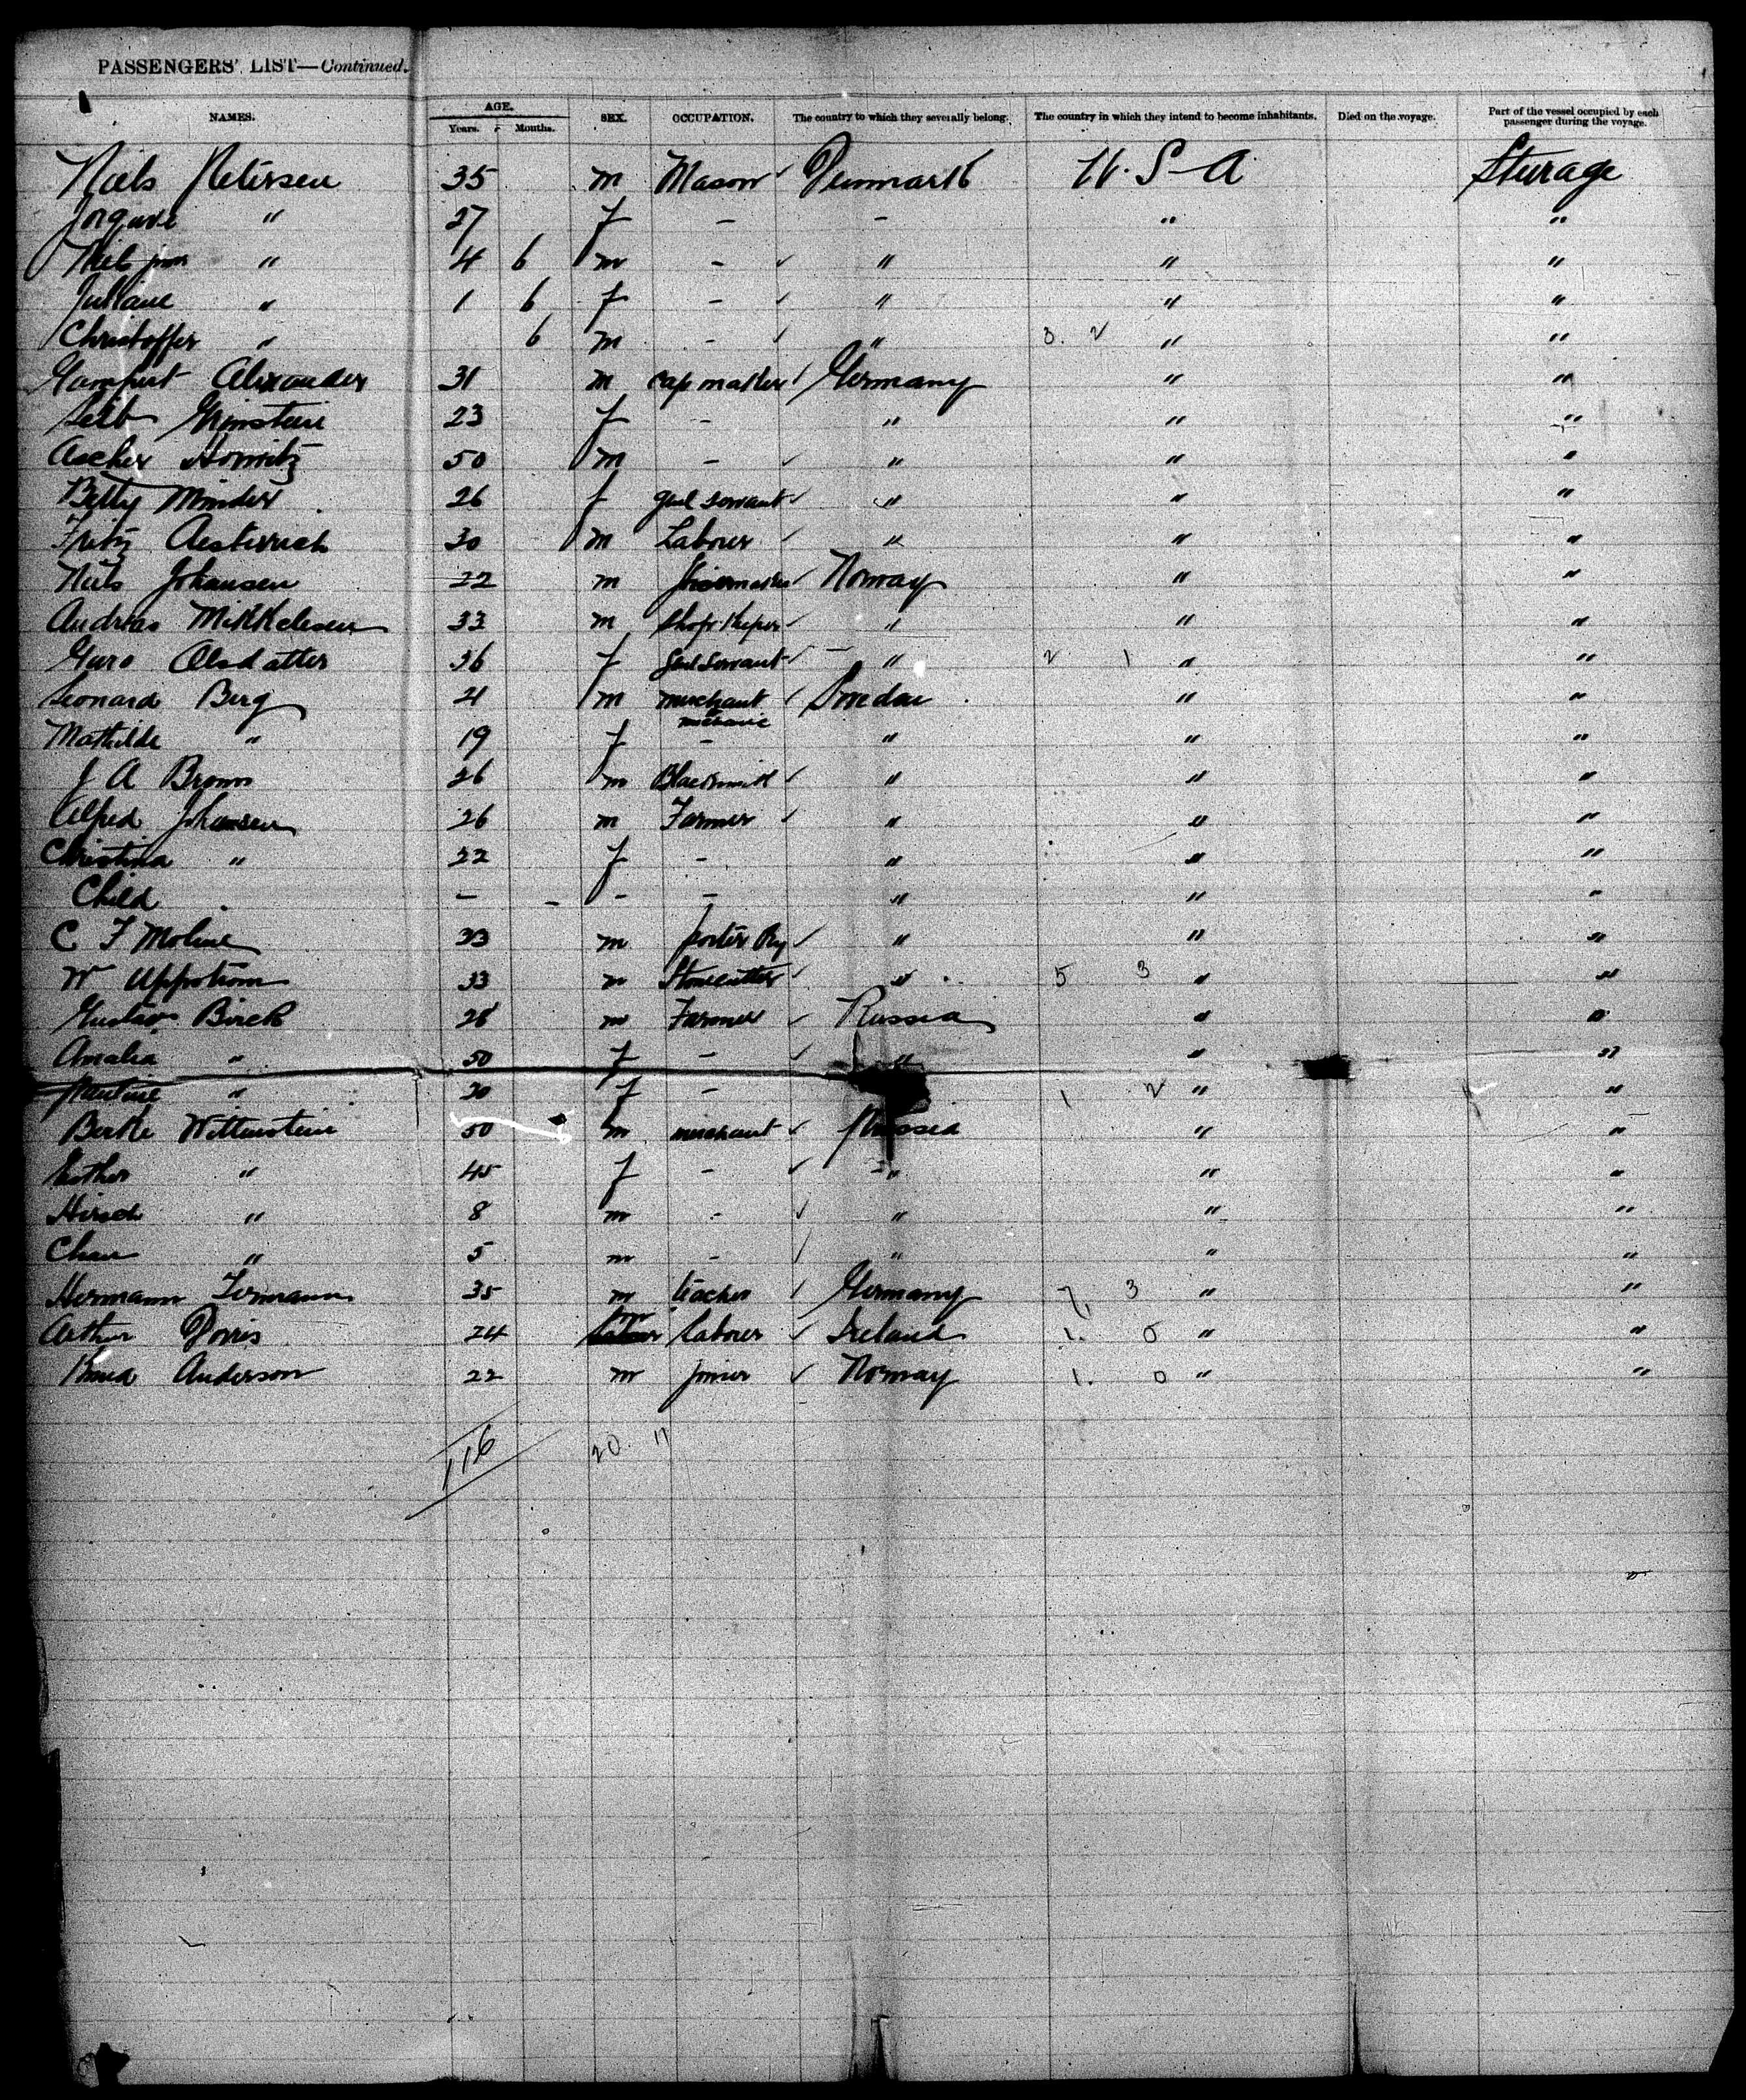 PASSENGERS' LIST—Continued.
NAMES. AGE. Years. Months. SEX. OCCUPATION. The country to which they severally belong. The country in which they intend to become inhabitants. Died on the voyage. Part of the vessel occupied by each passenger during the voyage.
Niels Petersen 35 m Mason Denmark U.S-A Sturage
" 27 f - - " "
Niels " 4 6 m - " " "
Juliane " 1 6 f - " " "
Christoffer " 6 m - " 3. 2 " "
Alexander 31 m cap maker Germany " "
23 f - " " "
Ascher Horwitz 50 m - " " "
Betty Minder 26 f genl servant " " "
Fritz 30 m Labourer " " "
Niels Johansen 22 m Norway " "
Andreas Mikkelsen 33 m Shop Keeper " " "
Guro Olsdatter 36 f genl servant " 2 1 " "
Leonard Berg 21 m merchant Sweden " "
Mathilde " 19 f - " " "
J A Brown 26 m Blacksmith " " "
Alfred Johansen 26 m Farmer " " "
Christina " 22 f - " " "
Child - - - - " " "
C F Moline 33 m porter Ry " " "
W Uppstrom 33 m Stonecutter " 5 3 " "
Gustav Birck 28 m Farmer Russia " "
Amalia " 50 f - " " "
" 30 f - 1 2 " "
Berke Wittenstein 50 m merchant Russia " "
Esther " 45 f - " " "
Hirsch " 8 m - " " "
" 5 m - " " "
Hermann 35 m teacher Germany 7, 3 " "
Arthur 24 m labourer Ireland 1. 0 " "
Anderson 22 m joiner Norway 1. 0 " "
116 20. 11